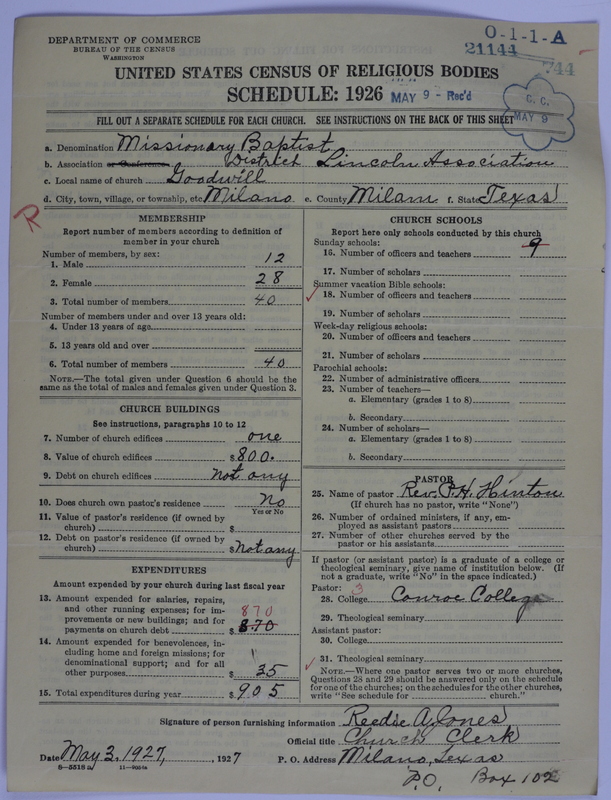 DEPARTMENT OF COMMERCE
BUREAU OF THE CENSUS
WASHINGTON
O-1-1-A
21144
744
UNITED STATES CENSUS OF RELIGIOUS BODIES
SCHEDULE: 1926
MAY 9 - Rec'd
C. C.
MAY 9
FILL OUT A SEPARATE SCHEDULE FOR EACH CHURCH. SEE INSTRUCTIONS ON THE BACK OF THIS SHEET
a. Denomination Missionary Baptist
b. Association or Conference District Lincoln Association
c. Local name of church Goodwill
d. City, town, village, or township, etc. Milano e. County Milam f. State Texas
R
MEMBERSHIP
Report number of members according to definition of
member in your church
Number of members, by sex:
1. Male 12
2. Female 28
3. Total number of members 40
Number of members under and over 13 years old:
4. Under 13 years of age
5. 13 years old and over
6. Total number of members 40
NOTE.—The total given under Question 6 should be the
same as the total of males and females given under Question 3.
CHURCH BUILDINGS
See instructions, paragraphs 10 to 12
7. Number of church edifices one
8. Value of church edifices $800.
9. Debt on church edifices not any
10. Does church own pastor's residence No
Yes or No
11. Value of pastor's residence (if owned by
church) $
12. Debt on pastor's residence (if owned by
church) $not any
EXPENDITURES
Amount expended by your church during last fiscal year
13. Amount expended for salaries, repairs,
and other running expenses; for im- 870
provements or new buildings; and for
payments on church debt $ 870
14. Amount expended for benevolences, in-
cluding home and foreign missions; for
denominational support; and for all
other purposes $ 35
15. Total expenditures during year $ 905
CHURCH SCHOOLS
Report here only schools conducted by this church
Sunday schools:
16. Number of officers and teachers 9
17. Number of scholars
Summer vacation Bible schools:
18. Number of officers and teachers
19. Number of scholars
Week-day religious schools:
20. Number of officers and teachers
21. Number of scholars
Parochial schools:
22. Number of administrative officers
23. Number of teachers—
a. Elementary (grades 1 to 8)
b. Secondary
24. Number of scholars—
a. Elementary (grades 1 to 8)
b. Secondary
PASTOR
25. Name of pastor Rev. P. H. Hinton
(If church has no pastor, write "None")
26. Number of ordained ministers, if any, em-
ployed as assistant pastors
27. Number of other churches served by the
pastor or his assistants
If pastor (or assistant pastor) is a graduate of a college or
theological seminary, give name of institution below. (If
not a graduate, write "No" in the space indicated.)
Pastor: 3
28. College Conroe College
29. Theological seminary
Assistant pastor:
30. College
31. Theological seminary
NOTE.—Where one pastor serves two or more churches,
Questions 28 and 29 should be answered only on the schedule
for one of the churches; on the schedules for the other churches,
write "See schedule for church."
Signature of person furnishing information Reedie A. Jones
Official title Church Clerk
Date May 2, 1927, , 1927 P. O. Address Milano, Texas
8—5518 a 11—9024a
P.O. Box 102